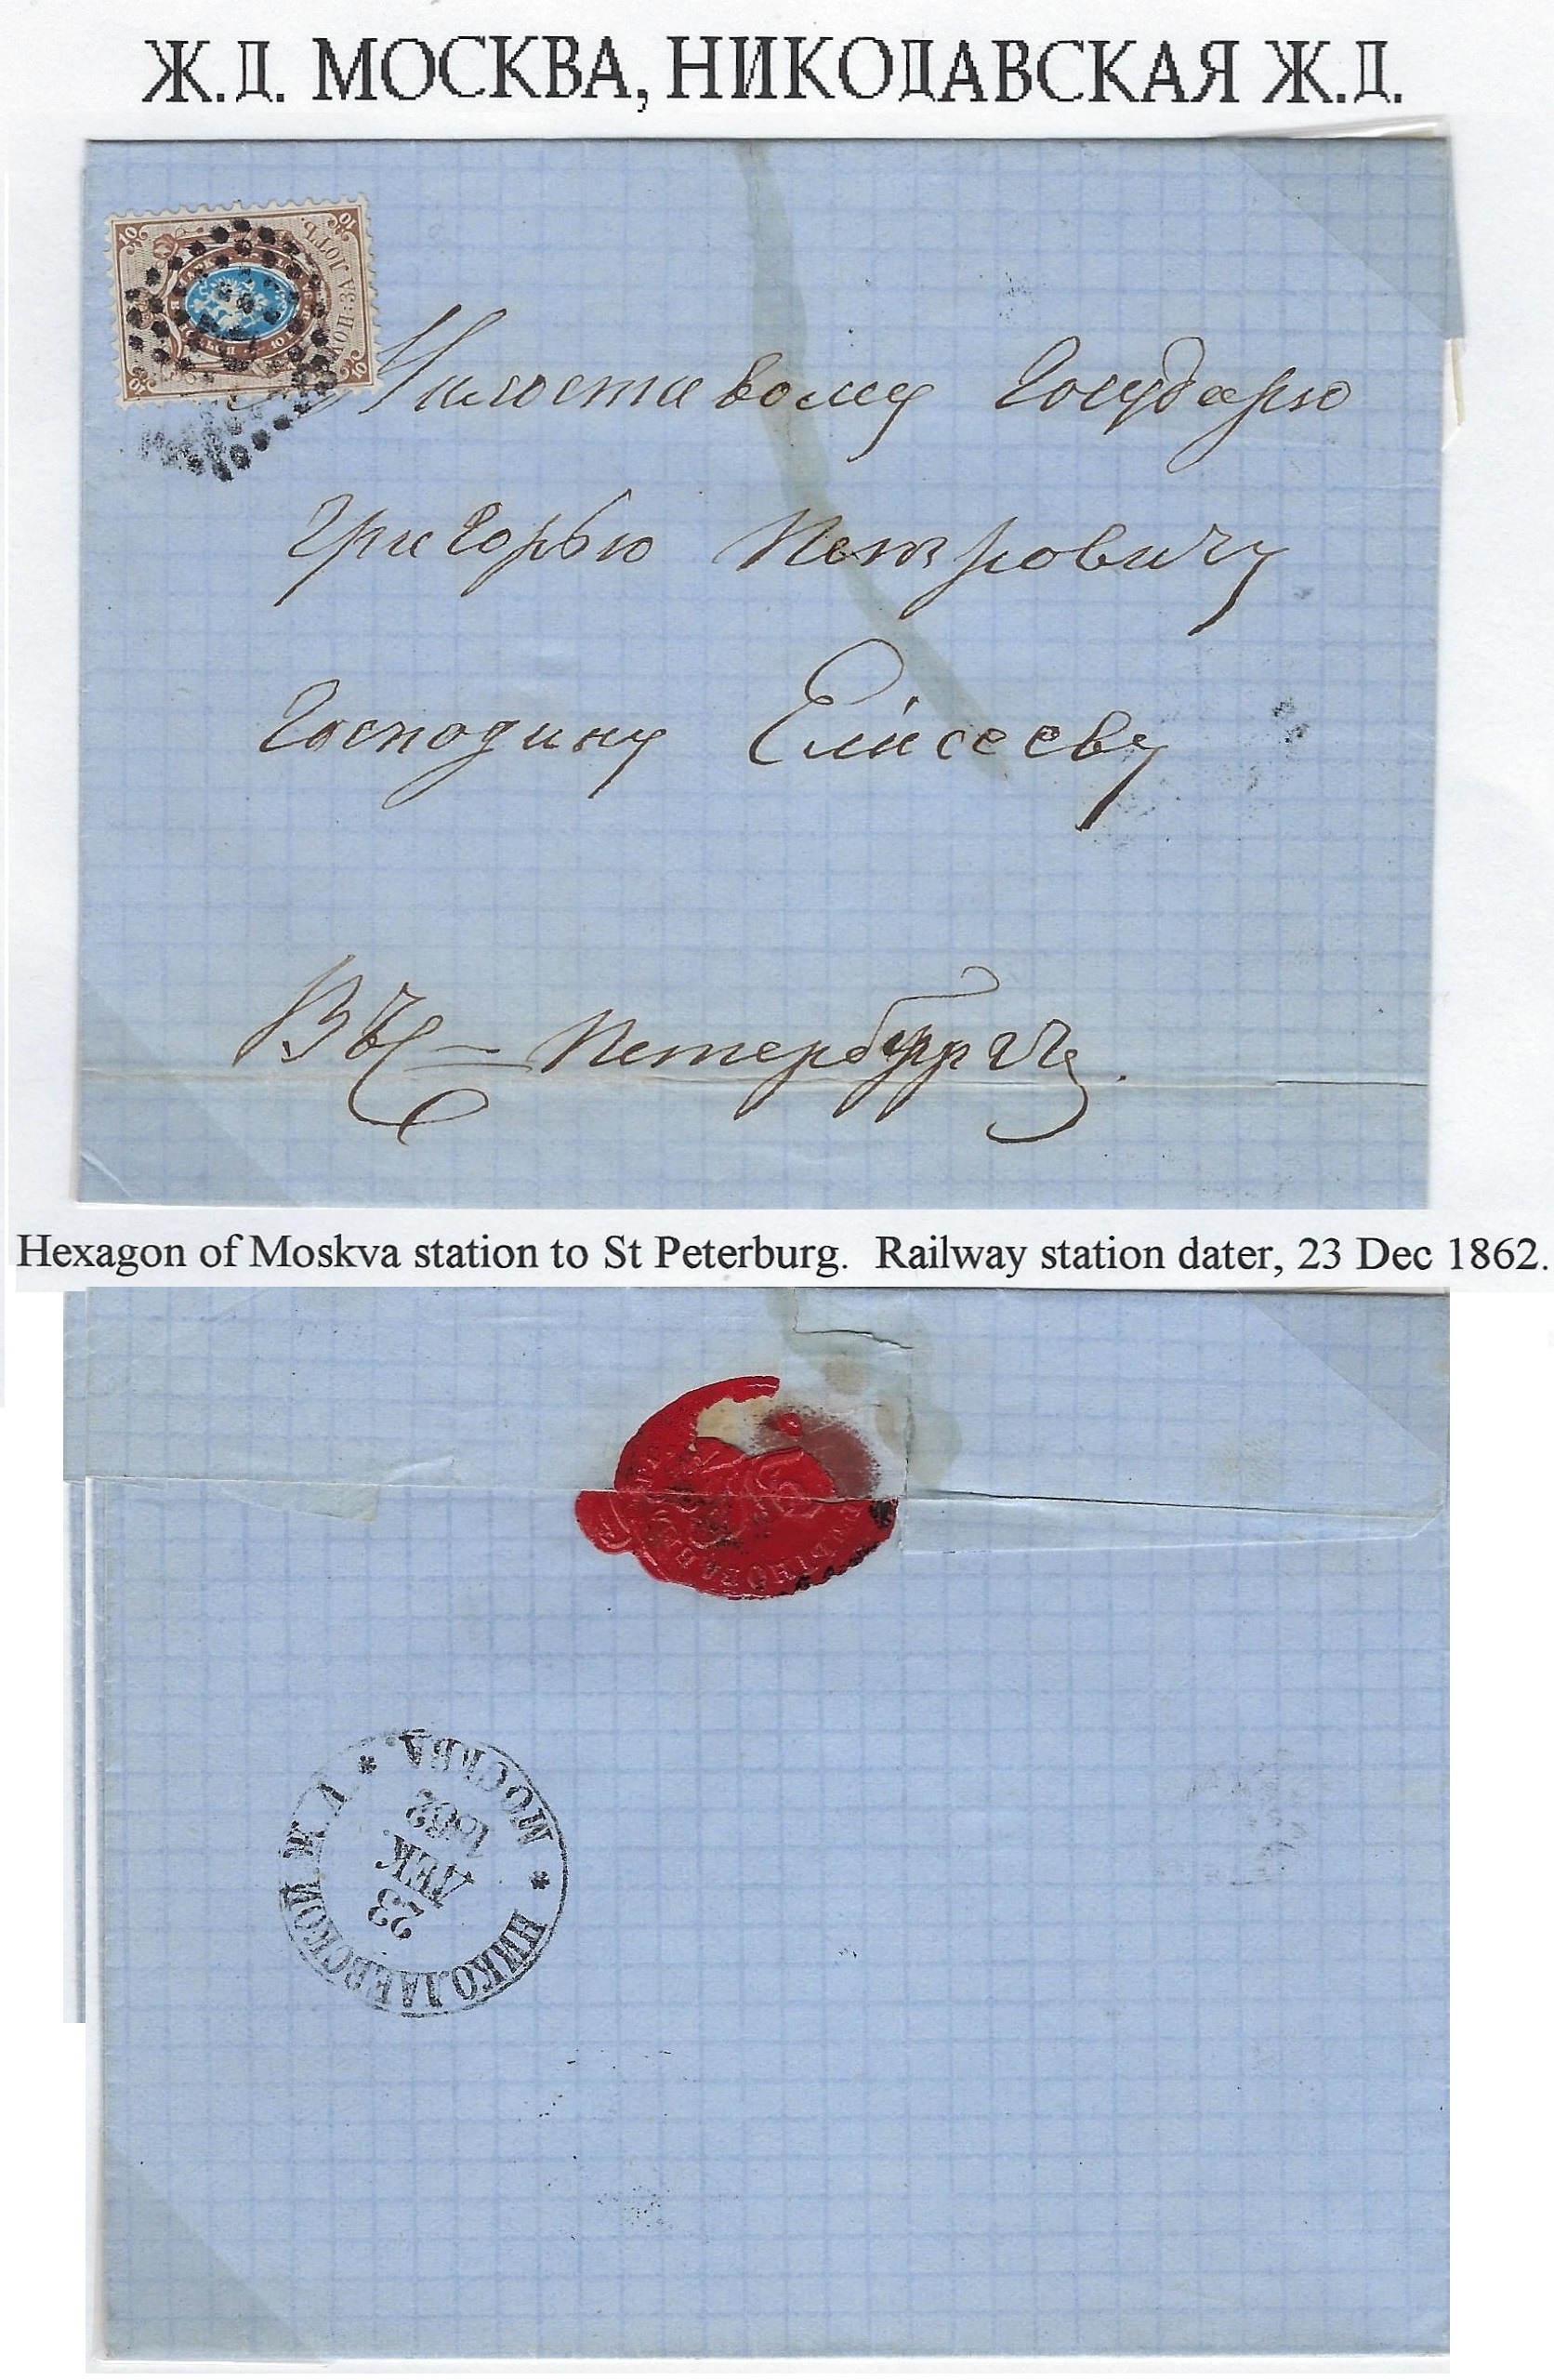 Ж.Д. МОСКВА, НИКОДАВСКАЯ Ж.Д.
10 10
ЗА ЛОТЪ.
10 10
Милостивому Государю
Григорью Петровичу
Господину Елисееву
Въ С Петербургъ.
Hexagon of Moskva station to St Peterburg. Railway station dater, 23 Dec 1862.
НИКОЛАЕВСКОЙ Ж.Д. * МОСКВА. *
23
ДЕК.
1862